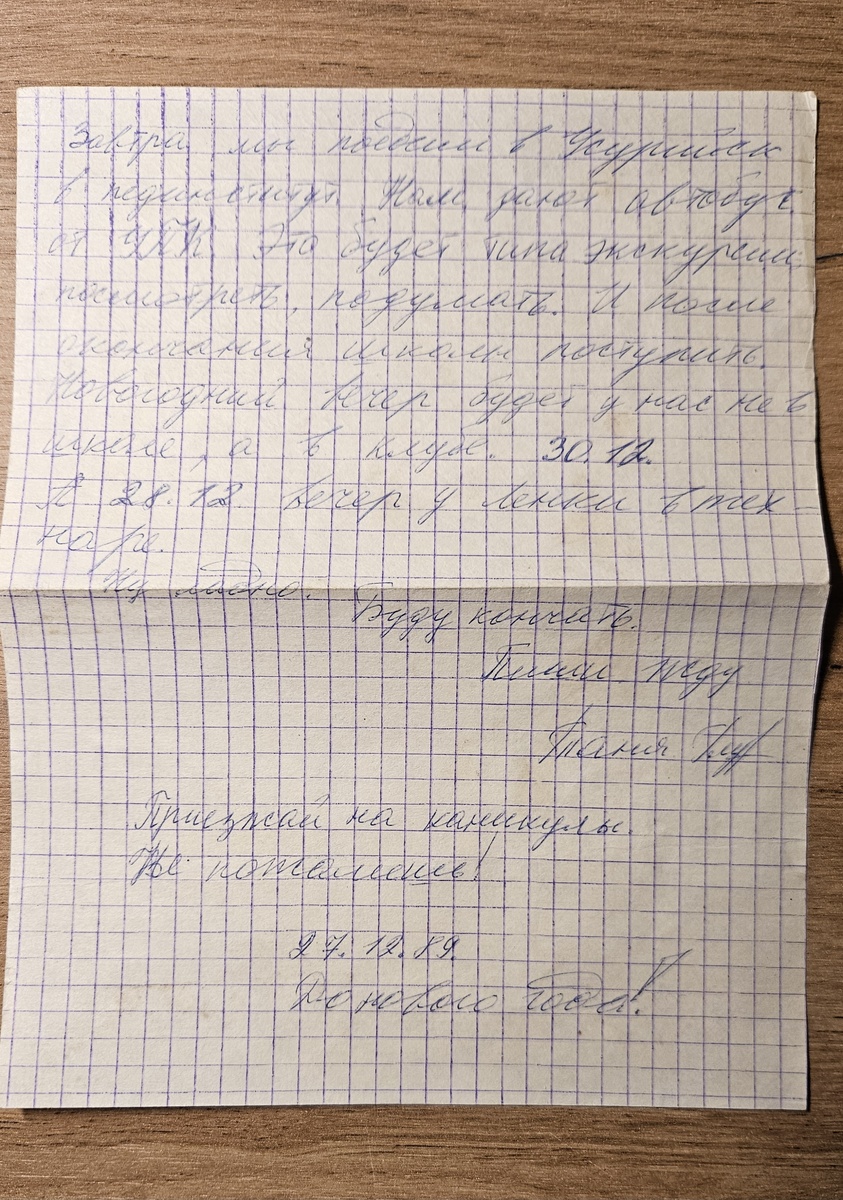 Завтра мы поедем в Усурийск
в пединститут. Нам дают автобус
от УПК. Это будет типа экскурсии:
посмотреть, подумать. И после
окончания школы поступить.
Новогодний вечер будет у нас не в
школе, а в клубе. 30.12.
А 28.12. вечер у Ленки в тех-
наре.
Ну ладно.
Буду кончать.
Пиши жду
Таня
Приезжай на каникулы.
Не пожалеешь!
27.12.89.
До нового года!